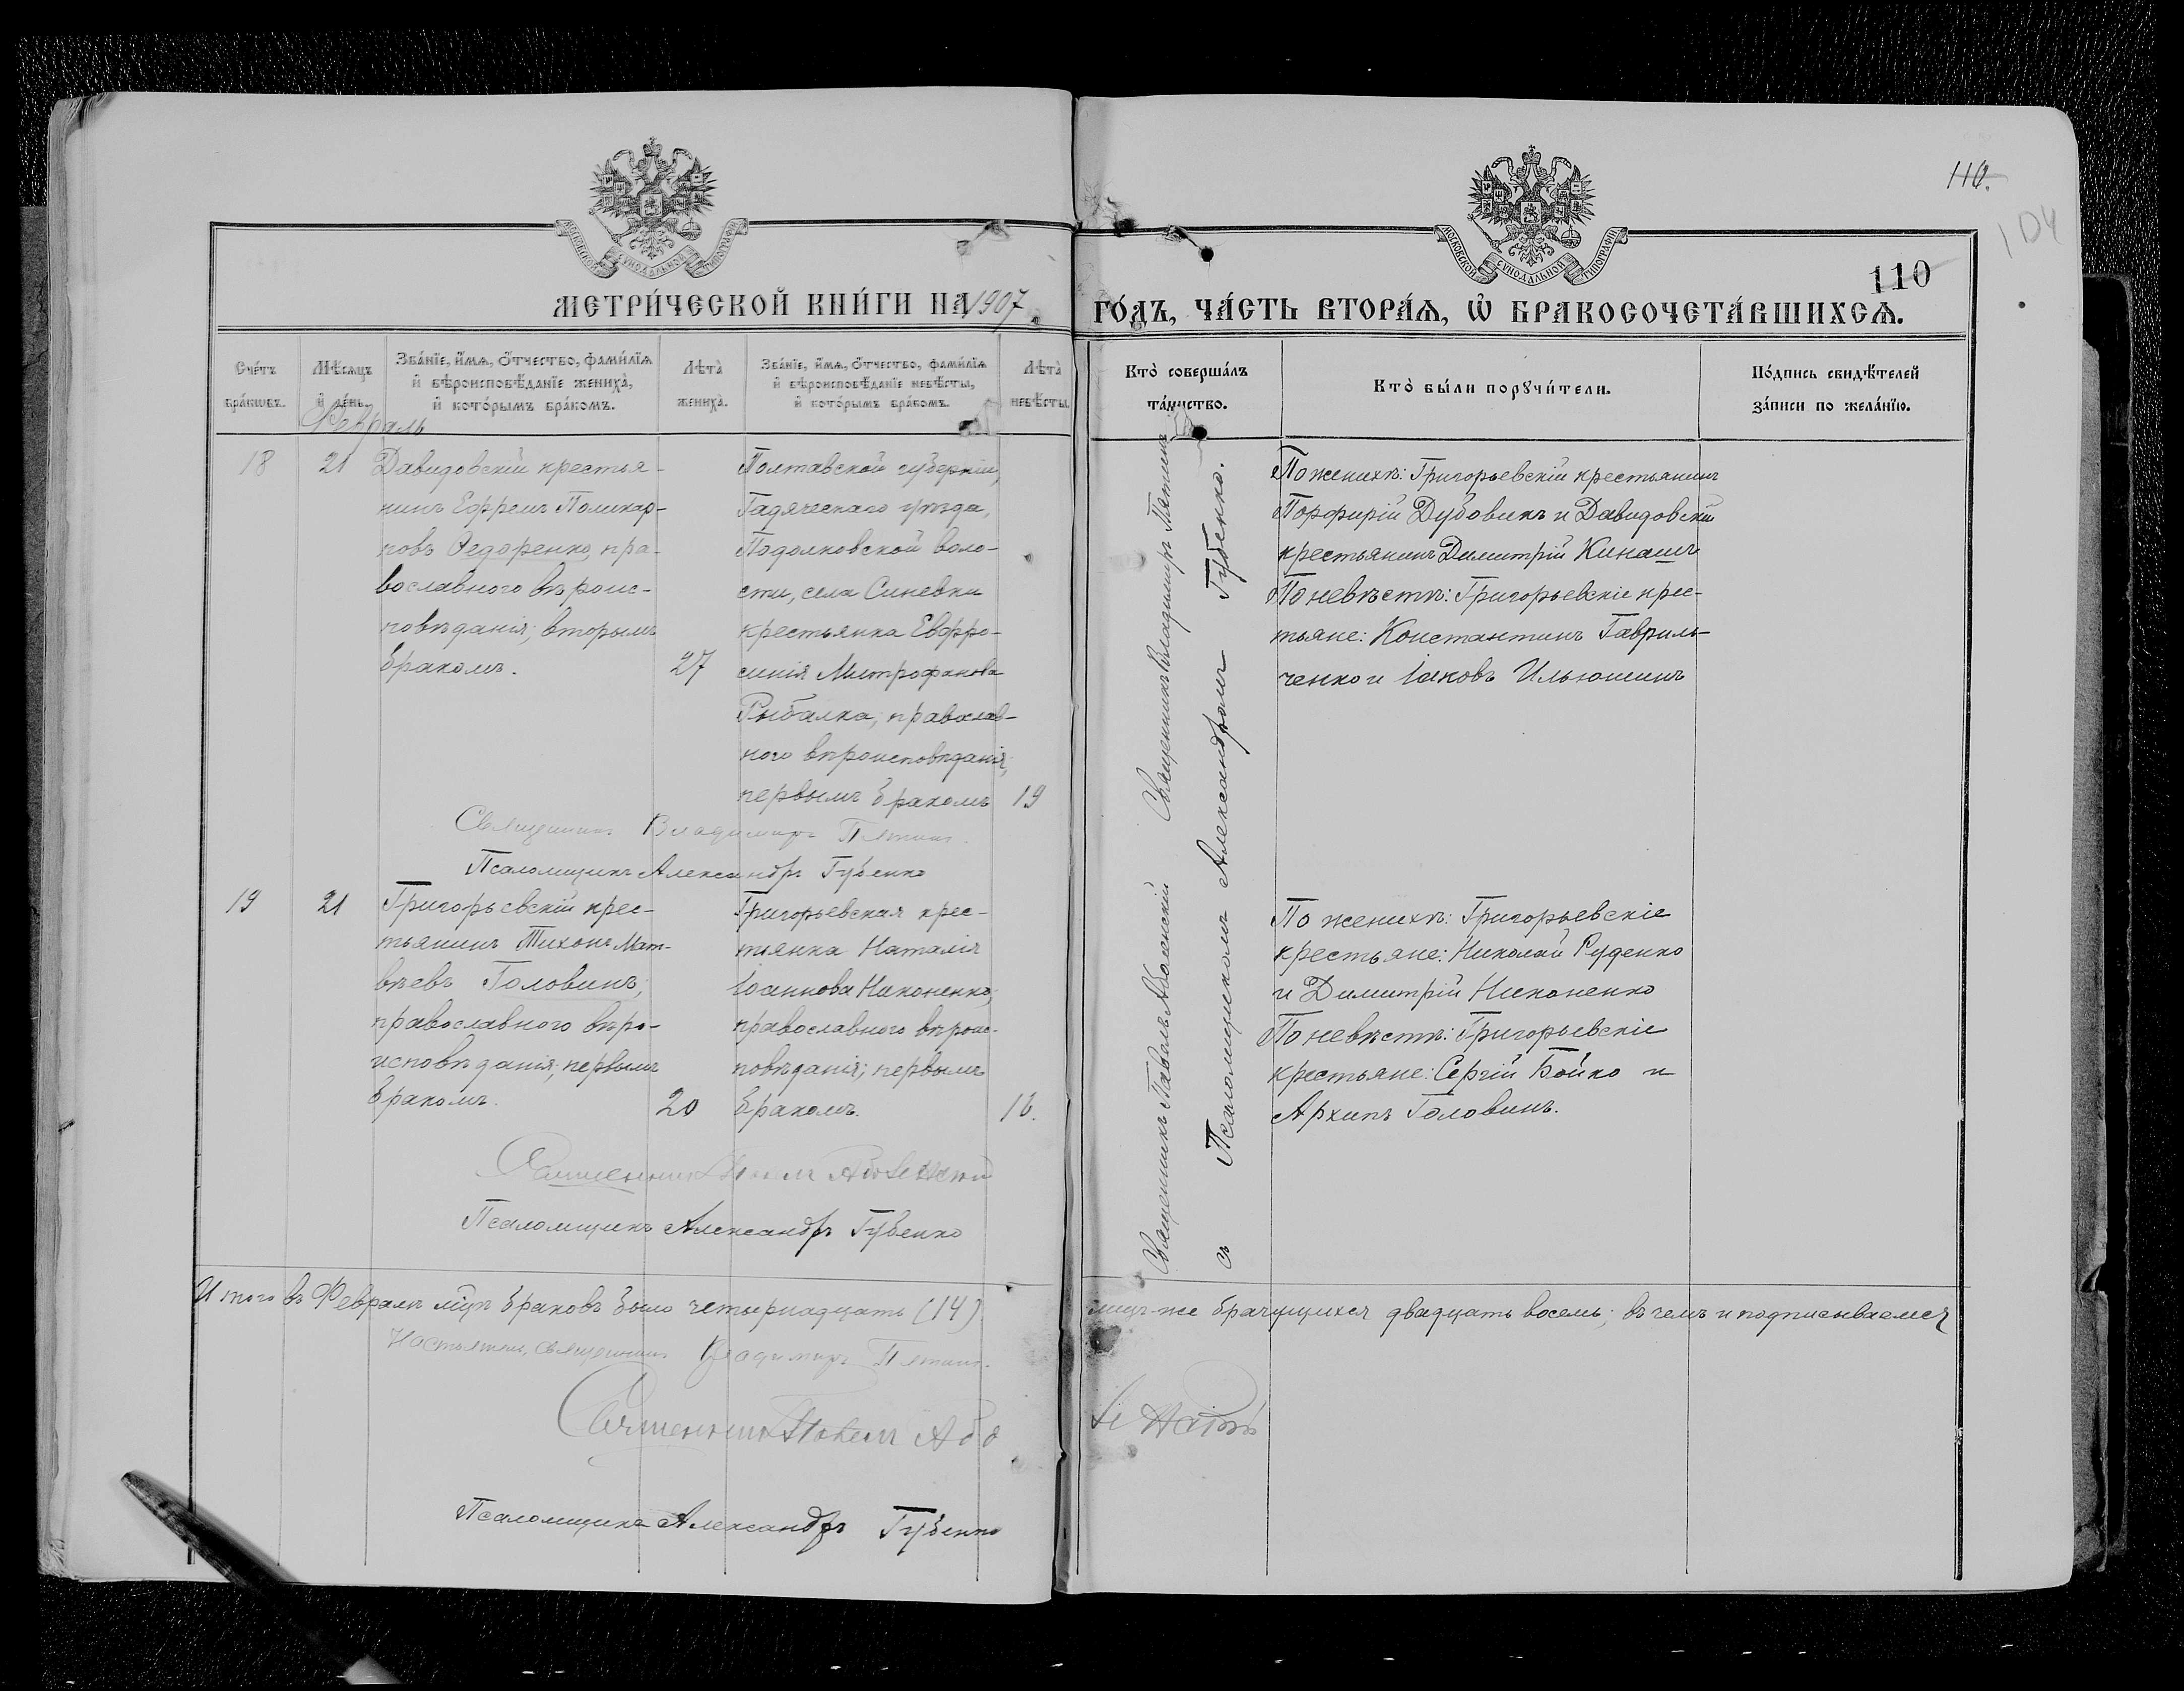 110.
104
110
МОСКОВСКОЙ СѴНОДАЛЬНОЙ ТИПОГРАФІИ
МОСКОВСКОЙ СѴНОДАЛЬНОЙ ТИПОГРАФІИ
МЕТРИ́ЧЕСКОЙ КНИ́ГИ НА 1907
ГО́ДЪ, ЧА́СТЬ ВТОРА́Ѧ, Ѽ БРАКОСОЧЕТА́ВШИХСѦ.
Сче́тъ
бра́ковъ.
Мѣ́сяцъ
и́ де́нь.
Зва́нїе, и́мѧ, о́тчество, фами́лїѧ
и́ вѣроисповѣ́данїе жениха̀,
и́ кото́рымъ бра́комъ.
Лѣта̀
жениха̀.
Зва́нїе, и́мѧ, о́тчество, фами́лїѧ
и́ вѣроисповѣ́данїе невѣ́сты,
и́ кото́рымъ бра́комъ.
Лѣта̀
невѣ́сты.
Кто̀ соверша́лъ
та́инство.
Кто̀ бы́ли порꙋчи́тели.
По́дпись свидѣ́телей
за́писи по жела́нїю.
Февраль
18
21
Давидовскій крестья-
нинъ Ефремъ Поликар-
повъ Ѳедоренко, пра-
вославного вѣроис-
повѣданія; вторымъ
бракомъ.
27
Полтавской губерніи,
Гадяческаго уѣзда,
Подолковской воло-
сти, села Синевки
крестьянка Евфро-
синія Митрофанова
Рыбалка, православ-
ного вѣроисповѣданія;
первымъ бракомъ
19
Священникъ Владимиръ Пятинъ.
Псаломщикъ Александръ Губенко
Священникъ Павелъ Або́ленскій Священникъ Владимиръ Пятинъ
съ Псаломщикомъ Александромъ Губенко.
По женихѣ: Григорьевскій крестьянинъ
Порфирій Дубовикъ и Давидовскій
крестьянинъ Димитрій Кинашъ
По невѣстѣ: Григорьевскіе крес-
тьяне: Константинъ Гавриль-
ченко и Іаковъ Ильюшинъ
19
21
Григорьевскій крес-
тьянинъ Тихонъ Мат-
вѣевъ Головинъ;
православного вѣро-
исповѣданія; первымъ
бракомъ.
20
Григорьевская крес-
тьянка Наталія
Іоаннова Никоненко;
православного вѣроис-
повѣданія; первымъ
бракомъ.
16.
По женихѣ: Григорьевскіе
крестьяне: Николай Руденко
и Димитрій Никоненко
По невѣстѣ: Григорьевскіе
крестьяне: Сергій Бойко и
Архипъ Головинъ.
Священникъ Павелъ
Псаломщикъ Александръ Губенко
Итого въ Февралѣ мцѣ браковъ было четырнадцать (14)
лицъ-же брачущихся двадцать восемь; въ чемъ и подписываемся
Настоятель, священникъ Владимиръ Пятинъ.
Священникъ Павелъ
Псаломщикъ Александръ Губенко